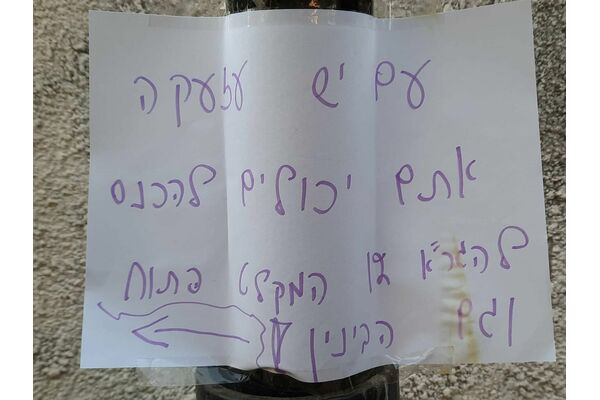 עם יש עזעקה
אתם יכולים להכנס
להגר"א המקלט פתוח
וגם הבינין